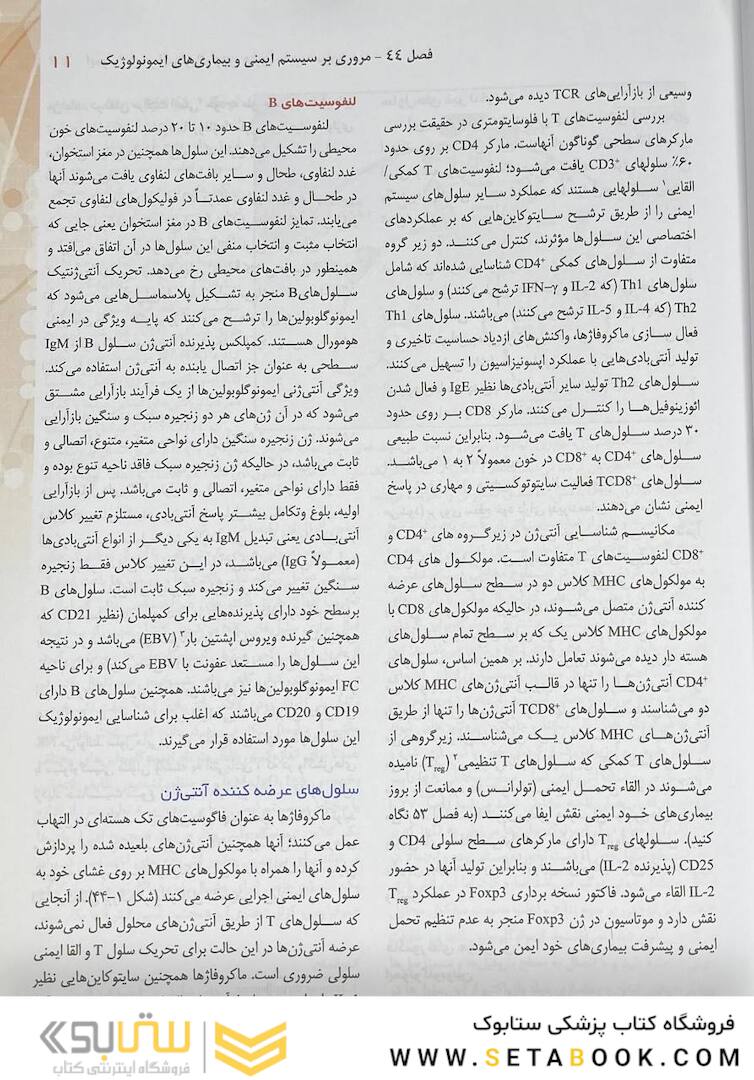 فصل ٤٤ - مروری بر سیستم ایمنی و بیماری‌های ایمونولوژیک ١١
وسیعی از بازآرایی‌های TCR دیده می‌شود.
بررسی لنفوسیت‌های T با فلوسایتومتری در حقیقت بررسی
مارکرهای سطحی گوناگون آنهاست. مارکر CD4 بر روی حدود
۶۰٪ سلولهای CD3⁺ یافت می‌شود؛ لنفوسیت‌های T کمکی/
القایی۱ سلولهایی هستند که عملکرد سایر سلول‌های سیستم
ایمنی را از طریق ترشح سایتوکاین‌هایی که بر عملکردهای
اختصاصی این سلول‌ها مؤثرند، کنترل می‌کنند. دو زیر گروه
متفاوت از سلول‌های کمکی CD4⁺ شناسایی شده‌اند که شامل
سلول‌های Th1 (که IL-2 و IFN-γ ترشح می‌کنند) و سلول‌های
Th2 (که IL-4 و IL-5 ترشح می‌کنند) می‌باشند. سلول‌های Th1
فعال سازی ماکروفاژها، واکنش‌های ازدیاد حساسیت تاخیری و
تولید آنتی‌بادی‌هایی با عملکرد اپسونیزاسیون را تسهیل می‌کنند.
سلول‌های Th2 تولید سایر آنتی‌بادی‌ها نظیر IgE و فعال شدن
ائوزینوفیل‌ها را کنترل می‌کنند. مارکر CD8 بر روی حدود
۳۰ درصد سلول‌های T یافت می‌شود. بنابراین نسبت طبیعی
سلول‌های CD4⁺ به CD8⁺ در خون معمولاً ۲ به ۱ می‌باشد.
سلول‌های TCD8⁺ فعالیت سایتوتوکسیتی و مهاری در پاسخ
ایمنی نشان می‌دهند.
مکانیسم شناسایی آنتی‌ژن در زیرگروه های CD4⁺ و
CD8⁺ لنفوسیت‌های T متفاوت است. مولکول های CD4
به مولکول‌های MHC کلاس دو در سطح سلول‌های عرضه
کننده آنتی‌ژن متصل می‌شوند، در حالیکه مولکول‌های CD8 با
مولکول‌های MHC کلاس یک که بر سطح تمام سلول‌های
هسته دار دیده می‌شوند تعامل دارند. بر همین اساس، سلول‌های
CD4⁺ آنتی‌ژن‌ها را تنها در قالب آنتی‌ژن‌های MHC کلاس
دو می‌شناسند و سلول‌های TCD8⁺ آنتی‌ژن‌ها را تنها از طریق
آنتی‌ژن‌های MHC کلاس یک می‌شناسند. زیرگروهی از
سلول‌های T کمکی که سلول‌های T تنظیمی۲ (Treg) نامیده
می‌شوند در القاء تحمل ایمنی (تولرانس) و ممانعت از بروز
بیماری‌های خود ایمنی نقش ایفا می‌کنند (به فصل ۵۳ نگاه
کنید). سلولهای Treg دارای مارکرهای سطح سلولی CD4 و
CD25 (پذیرنده IL-2) می‌باشند و بنابراین تولید آنها در حضور
IL-2 القاء می‌شود. فاکتور نسخه برداری Foxp3 در عملکرد Treg
نقش دارد و موتاسیون در ژن Foxp3 منجر به عدم تنظیم تحمل
ایمنی و پیشرفت بیماری‌های خود ایمن می‌شود.
لنفوسیت‌های B
لنفوسیت‌های B حدود ۱۰ تا ۲۰ درصد لنفوسیت‌های خون
محیطی را تشکیل می‌دهند. این سلول‌ها همچنین در مغز استخوان،
غدد لنفاوی، طحال و سایر بافت‌های لنفاوی یافت می‌شوند آنها
در طحال و غدد لنفاوی عمدتاً در فولیکول‌های لنفاوی تجمع
می‌یابند. تمایز لنفوسیت‌های B در مغز استخوان یعنی جایی که
انتخاب مثبت و انتخاب منفی این سلول‌ها در آن اتفاق می‌افتد و
همینطور در بافت‌های محیطی رخ می‌دهد. تحریک آنتی‌ژنتیک
سلول‌های B منجر به تشکیل پلاسماسل‌هایی می‌شود که
ایمونوگلوبولین‌ها را ترشح می‌کنند که پایه ویژگی در ایمنی
هومورال هستند. کمپلکس پذیرنده آنتی‌ژن سلول B از IgM
سطحی به عنوان جز اتصال یابنده به آنتی‌ژن استفاده می‌کند.
ویژگی آنتی‌ژنی ایمونوگلوبولین‌ها از یک فرآیند بازآرایی مشتق
می‌شود که در آن ژن‌های هر دو زنجیره سبک و سنگین بازآرایی
می‌شوند. ژن زنجیره سنگین دارای نواحی متغیر، متنوع، اتصالی و
ثابت می‌باشد، در حالیکه ژن زنجیره سبک فاقد ناحیه تنوع بوده و
فقط دارای نواحی متغیر، اتصالی و ثابت می‌باشد. پس از بازآرایی
اولیه، بلوغ وتکامل بیشتر پاسخ آنتی‌بادی، مستلزم تغییر کلاس
آنتی‌بادی یعنی تبدیل IgM به یکی دیگر از انواع آنتی‌بادی‌ها
(معمولاً IgG) می‌باشد، در این تغییر کلاس فقط زنجیره
سنگین تغییر می‌کند و زنجیره سبک ثابت است. سلول‌های B
برسطح خود دارای پذیرنده‌هایی برای کمپلمان (نظیر CD21 که
همچنین گیرنده ویروس اپشتین بار۳ (EBV) می‌باشد و در نتیجه
این سلول‌ها را مستعد عفونت با EBV می‌کند) و برای ناحیه
FC ایمونوگلوبولین‌ها نیز می‌باشند. همچنین سلول‌های B دارای
CD19 و CD20 می‌باشند که اغلب برای شناسایی ایمونولوژیک
این سلول‌ها مورد استفاده قرار می‌گیرند.
سلول‌های عرضه کننده آنتی‌ژن
ماکروفاژها به عنوان فاگوسیت‌های تک هسته‌ای در التهاب
عمل می‌کنند؛ آنها همچنین آنتی‌ژن‌های بلعیده شده را پردازش
کرده و آنها را همراه با مولکول‌های MHC بر روی غشای خود به
سلول‌های ایمنی اجرایی عرضه می‌کنند (شکل ۱-۴۴). از آنجایی
که سلول‌های T از طریق آنتی‌ژن‌های محلول فعال نمی‌شوند،
عرضه آنتی‌ژن‌ها در این حالت برای تحریک سلول T و القا ایمنی
سلولی ضروری است. ماکروفاژها همچنین سایتوکاین‌هایی نظیر
فروشگاه کتاب پزشکی ستابوک
WWW.SETABOOK.COM
ستابوک
فروشگاه اینترنتی کتاب